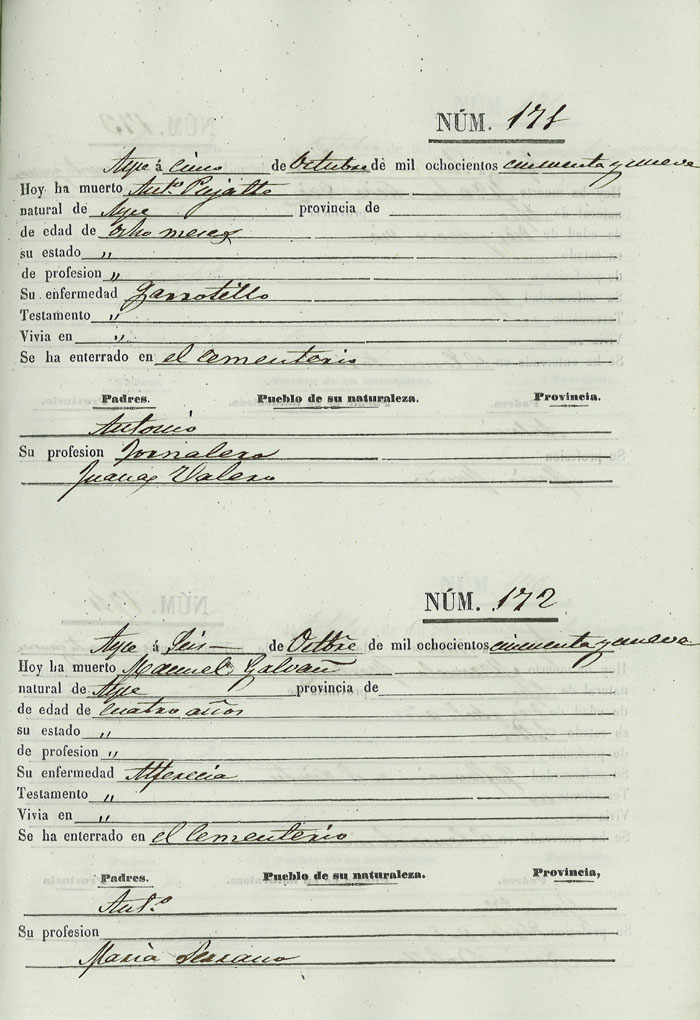 NÚM. 171
Aspe á cinco de Octubre de mil ochocientos cincuenta y nueve
Hoy ha muerto Antº Pujalte
natural de Aspe provincia de
de edad de ocho meses
su estado "
de profesion "
Su enfermedad Garrotillo
Testamento "
Vivia en "
Se ha enterrado en el cementerio
Padres. Pueblo de su naturaleza. Provincia.
Antonio
Su profesion Jornalero
Juana Valero
NÚM. 172
Aspe á Seis de Octbre de mil ochocientos cincuenta y nueve
Hoy ha muerto Manuel Galvañ
natural de Aspe provincia de
de edad de cuatro años
su estado "
de profesion "
Su enfermedad Alferecia
Testamento "
Vivia en "
Se ha enterrado en el Cementerio
Padres. Pueblo de su naturaleza. Provincia,
Antº
Su profesion
Maria Serrano